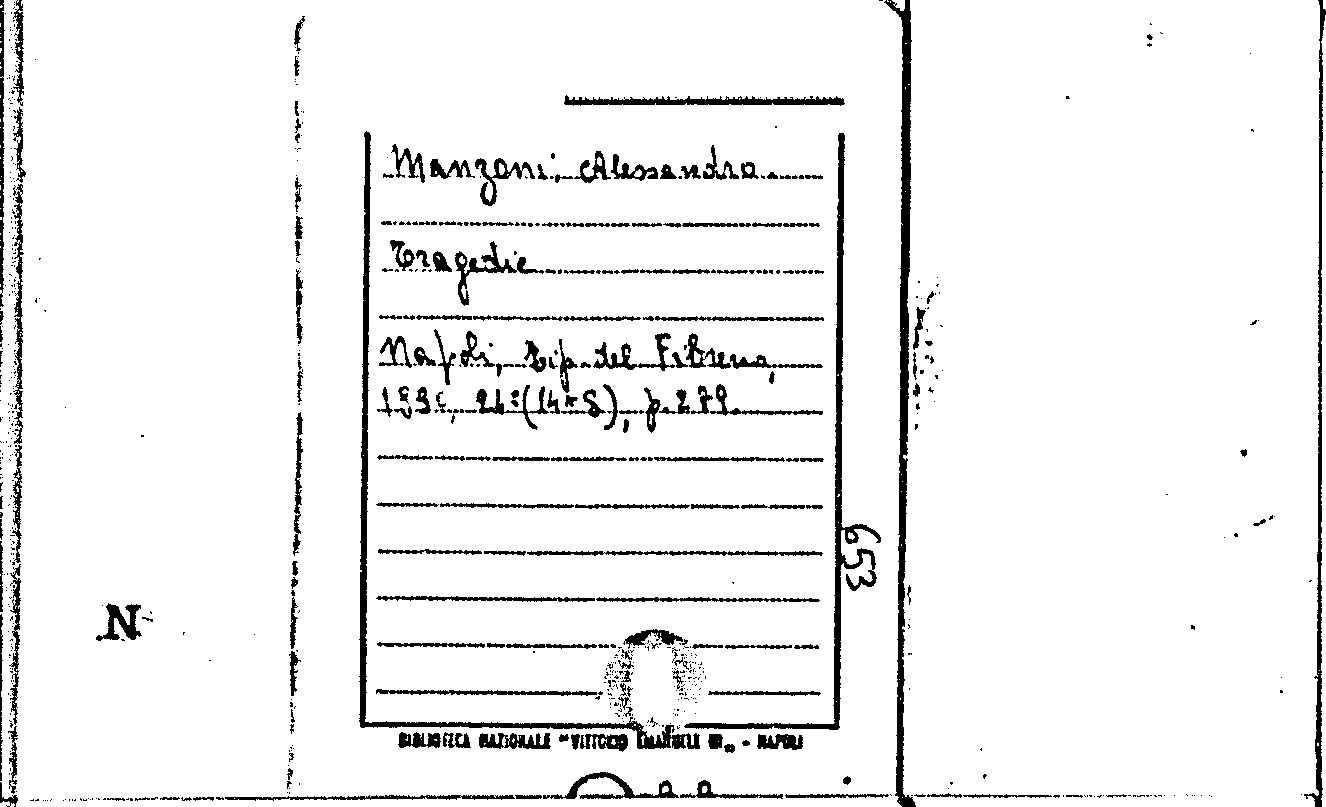 Manzoni, Alessandro.
Tragedie
Napoli, Tip. del Fibreno,
24º (14 x 8), p. 279.
653
N
BIBLIOTECA NAZIONALE "VITTORIO EMANUELE III„ - NAPOLI